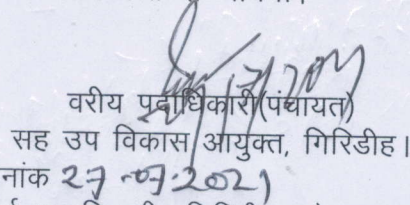 वरीय पदाधिकारी(पंचायत)
सह उप विकास आयुक्त, गिरिडीह।
नांक 27-07-2021